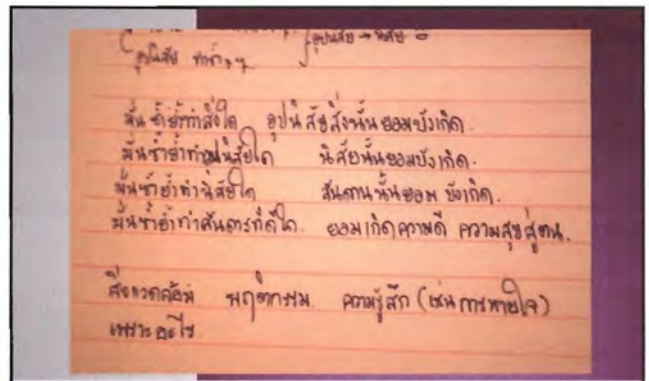 อุปนิสัย → นิสัย =
อุปนิสัย ทำซ้ำๆ
มั่นซ้ำย้ำทำสิ่งใด อุปนิสัยสิ่งนั้นยอมบังเกิด.
มั่นซ้ำย้ำทำอุปนิสัยใด นิสัยนั้นยอมบังเกิด.
มั่นซ้ำย้ำทำนิสัยใด สันดานนั้นยอม บังเกิด.
มั่นซ้ำย้ำทำสันดารที่ดีใด. ยอมเกิดความดี ความสุขสู่ตน.
สิ่งแวดล้อม พฤติกรรม ความรู้สึก (เช่น การหายใจ)
เพราะอะไร